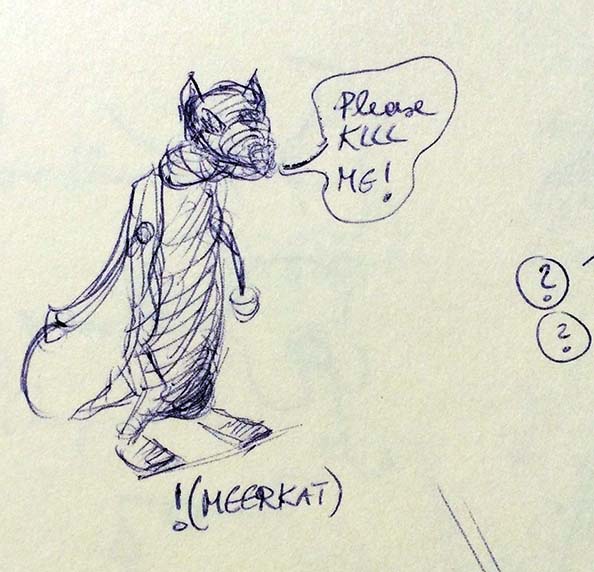 Please
KILL
ME!
?
?
!(MEERKAT)